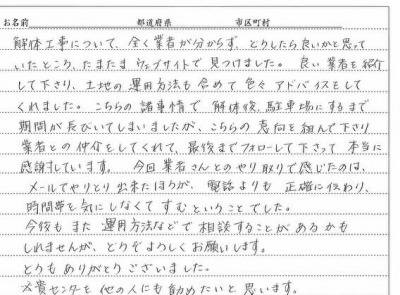 お名前 都道府県 市区町村
解体工事について、全く業者が分からず、どうしたら良いかと思って
いたところ、たまたまウェブサイトで見つけました。良い業者を紹介
して下さり、土地の運用方法も含めて色々アドバイスをして
くれました。こちらの諸事情で解体後、駐車場にするまで
期間が長びいてしまいましたが、こちらの意向を組んで下さり
業者との仲介をしてくれて、最後までフォローして下さって本当に
感謝しています。今回業者さんとのやり取りで感じたのは、
メールでやりとり出来たほうが、電話よりも正確に伝わり、
時間帯を気にしなくてすむということでした。
今後もまた運用方法などで相談することがあるかも
しれませんが、どうぞよろしくお願いします。
とてもありがとうございました。
センターを他の人にも勧めたいと思います。